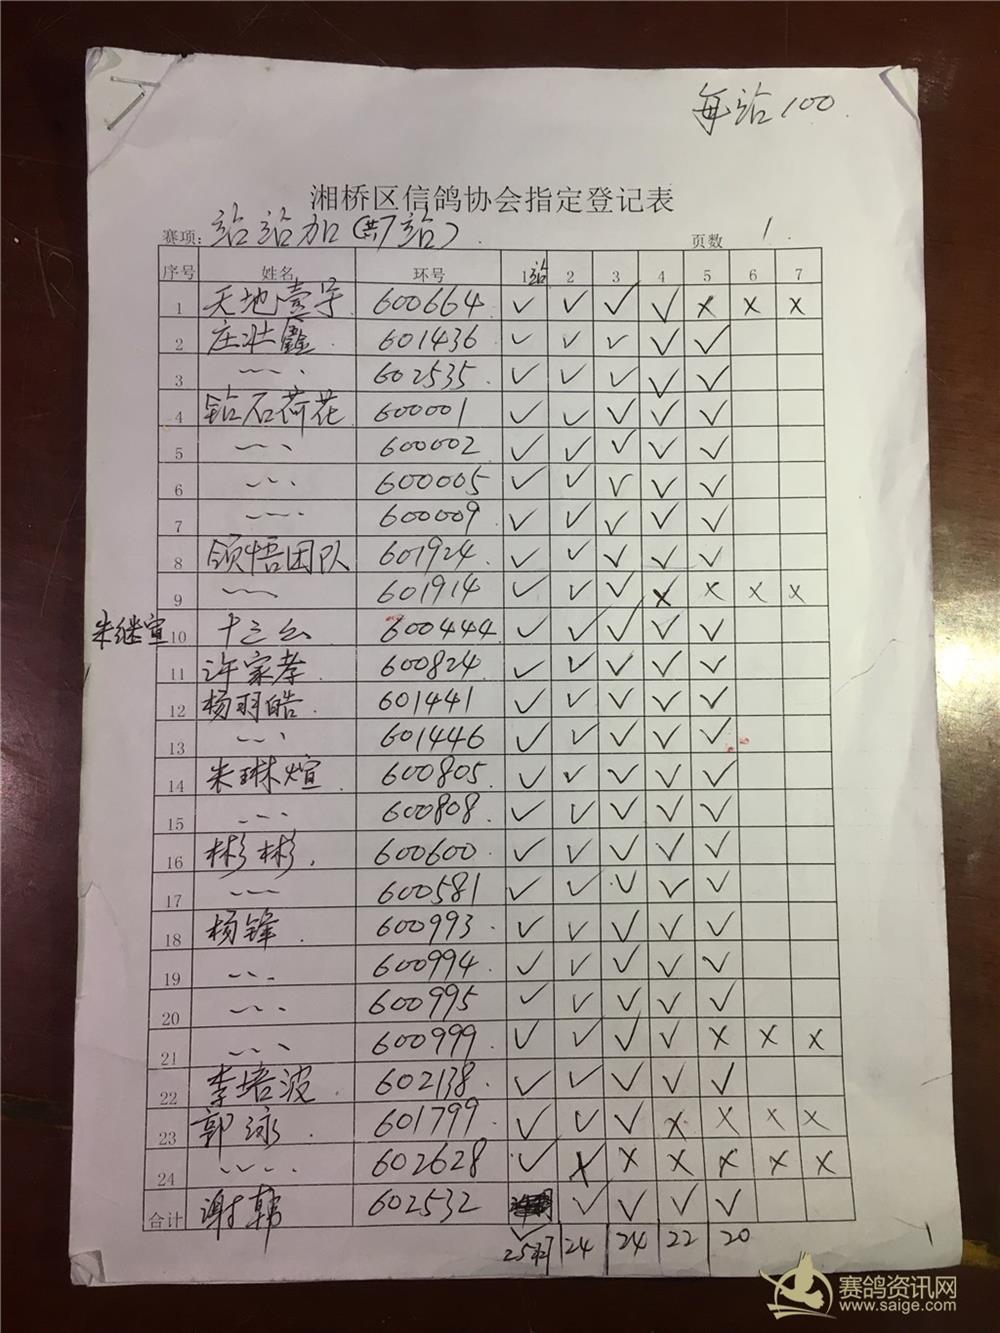 每站100
湘桥区信鸽协会指定登记表
赛项: 站站加(共7站) 页数 1
序号 姓名 环号 1站 2 3 4 5 6 7
1 天地壹宇 600664 ✓ ✓ ✓ ✓ × × ×
2 庄壮鑫 601436 ✓ ✓ ✓ ✓ ✓
3 〃 602535 ✓ ✓ ✓ ✓ ✓
4 钻石荷花 600001 ✓ ✓ ✓ ✓ ✓
5 〃 600002 ✓ ✓ ✓ ✓ ✓
6 〃 600005 ✓ ✓ ✓ ✓ ✓
7 〃 600009 ✓ ✓ ✓ ✓ ✓
8 领悟团队 601924 ✓ ✓ ✓ ✓ ✓
9 〃 601914 ✓ ✓ ✓ × × × ×
朱继宣 10 十三幺 600444 ✓ ✓ ✓ ✓ ✓
11 许家孝 600824 ✓ ✓ ✓ ✓ ✓
12 杨羽皓 601441 ✓ ✓ ✓ ✓ ✓
13 〃 601446 ✓ ✓ ✓ ✓ ✓
14 朱琳煊 600805 ✓ ✓ ✓ ✓ ✓
15 〃 600808 ✓ ✓ ✓ ✓ ✓
16 彬彬 600600 ✓ ✓ ✓ ✓ ✓
17 〃 600581 ✓ ✓ ✓ ✓ ✓
18 杨锋 600993 ✓ ✓ ✓ ✓ ✓
19 〃 600994 ✓ ✓ ✓ ✓ ✓
20 〃 600995 ✓ ✓ ✓ ✓ ✓
21 〃 600999 ✓ ✓ ✓ ✓ × × ×
22 李培波 602138 ✓ ✓ ✓ ✓ ✓
23 郭泳 601799 ✓ ✓ ✓ × × × ×
24 〃 602628 ✓ × × × × × ×
合计 谢韩 602532 ✓ ✓ ✓ ✓ ✓
25羽 24 24 22 20
1
赛鸽资讯网
www.saige.com